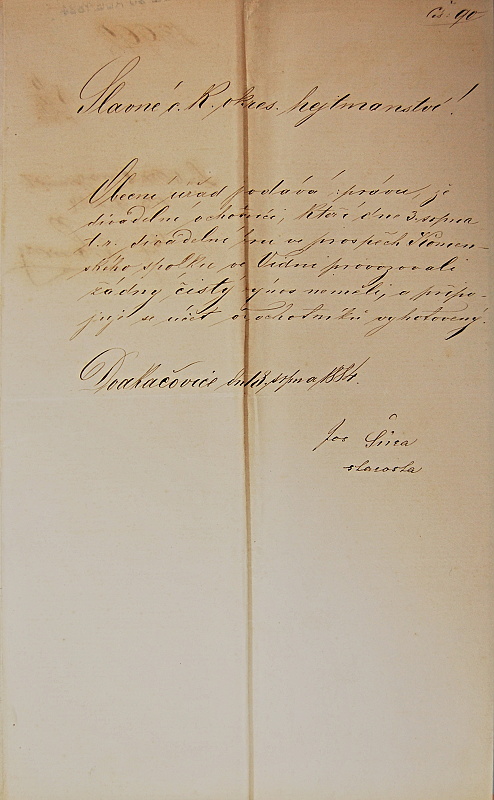 Čís. 90
Slavné c. k. okres. hejtmanství!
Obecní úřad podává zprávu, že
divadelní ochotníci, kteří dne 3. srpna
t. r. divadelní hru ve prospěch Komen-
ského spolku ve Vídni provozovali
žádný čistý výnos neměli, a připo-
juje se účet od ochotníků vyhotovený.
dne 13. srpna 1884.
Jos Šůra
starosta